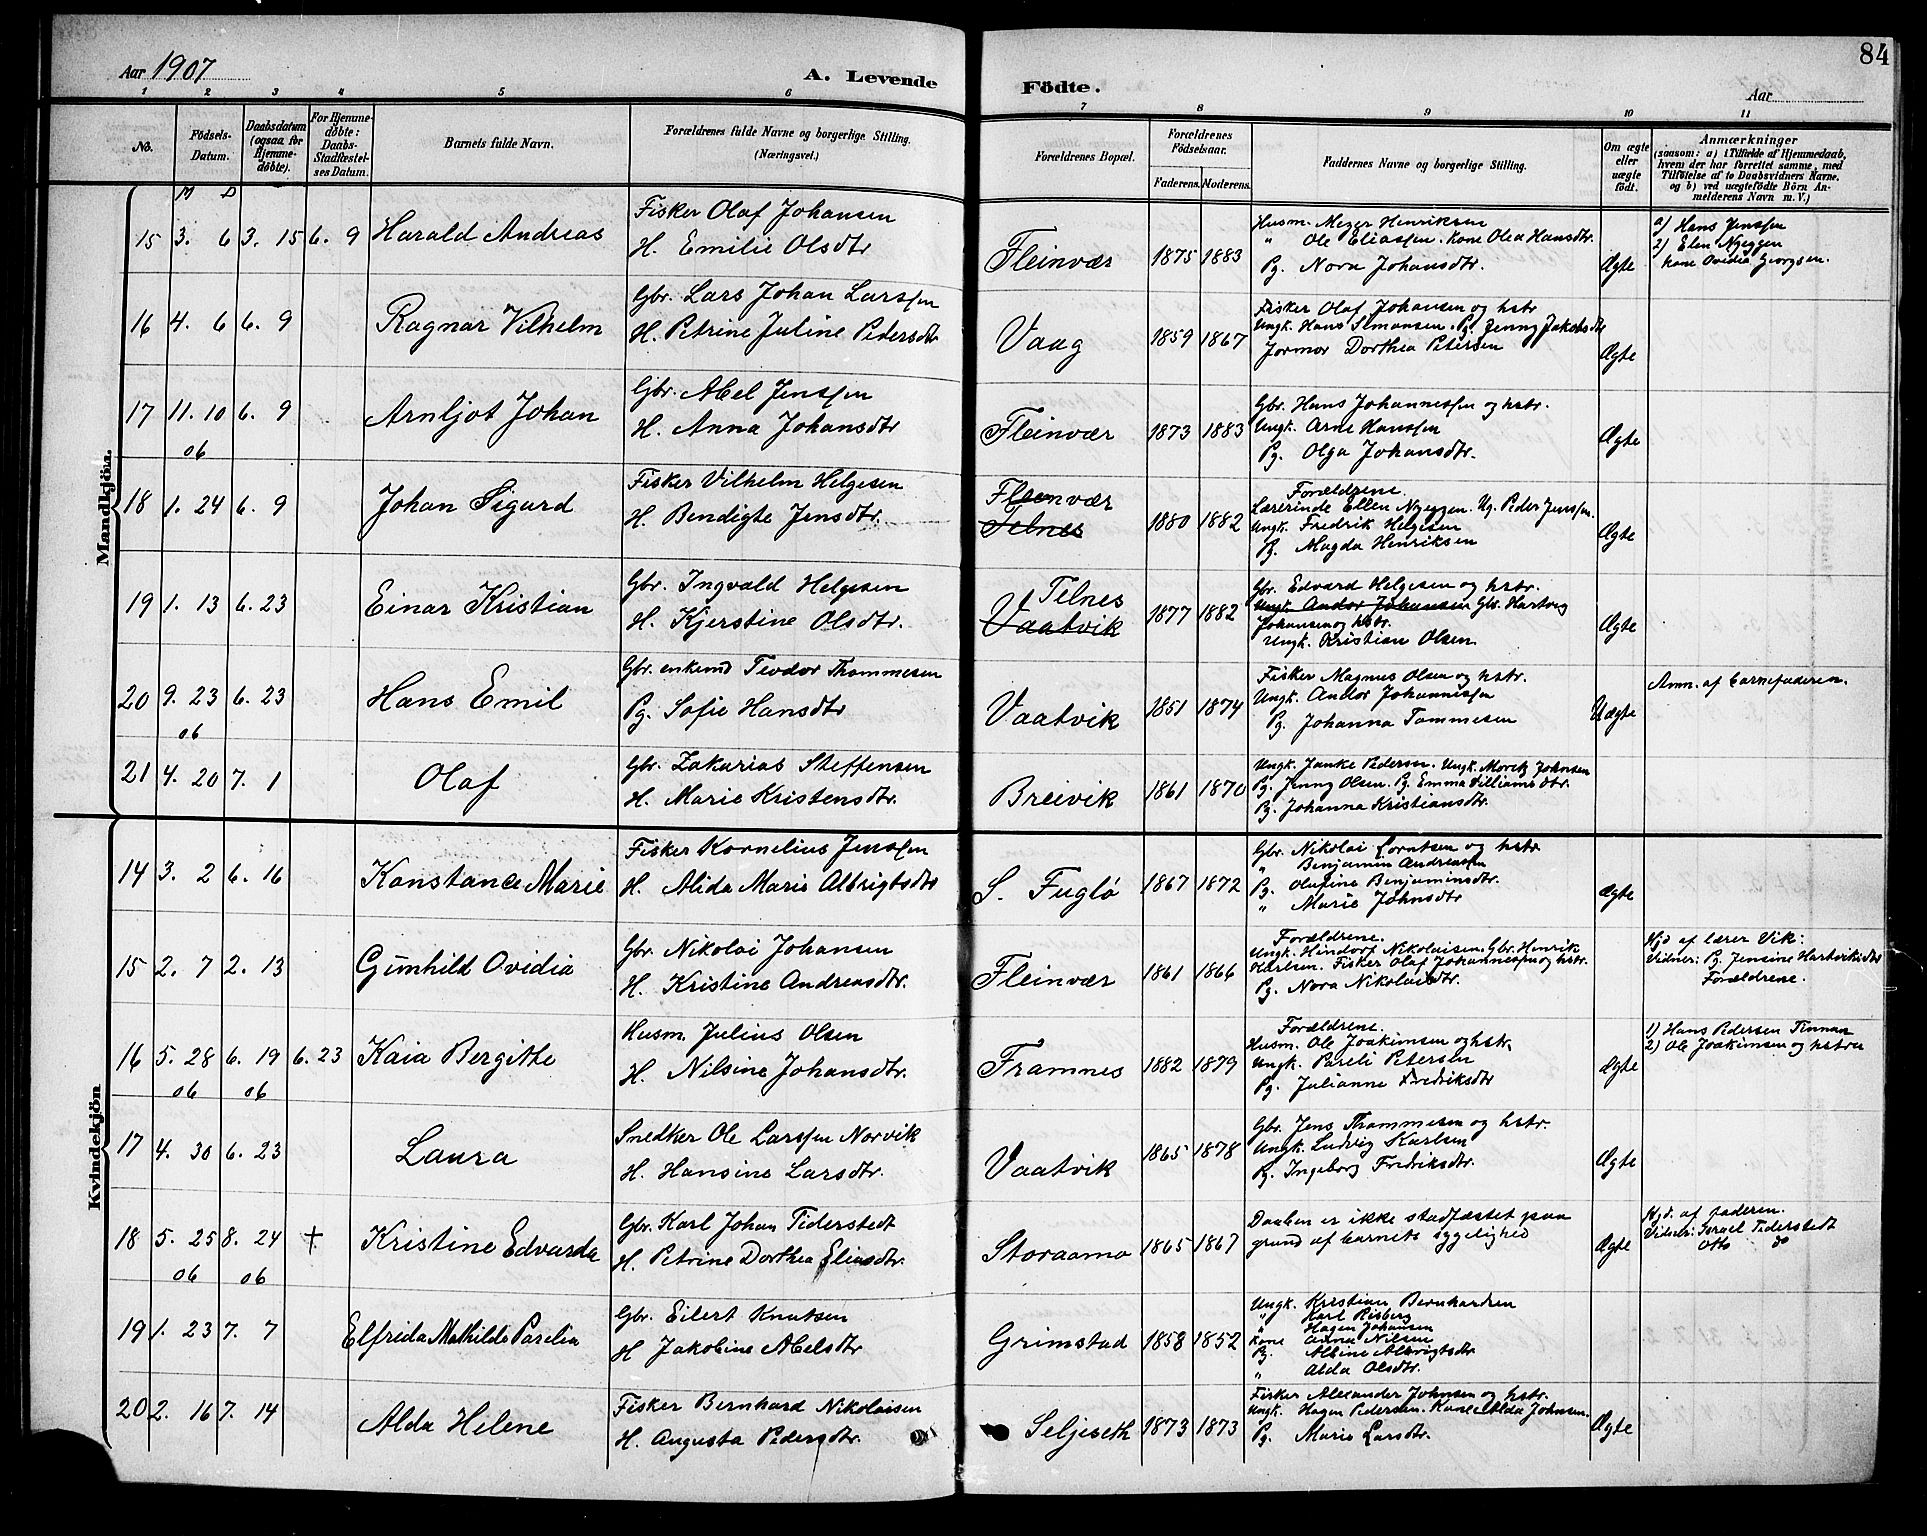 84
Aar 1907
A. Levende
Födte.
Aar
1 2 3 4 5 6 7 8 9 10 11
No.
Födsels-Datum.
Daabsdatum (ogsaa for Hjemmedöbte).
For Hjemmedöbte: Daabs-Stadfæstelses Datum.
Barnets fulde Navn.
Forældrenes fulde Navne og borgerlige Stilling.
(Næringsvei.)
Forældrenes Bopæl.
Forældrenes Födselsaar.
Faderens. Moderens.
Faddernes Navne og borgerlige Stilling.
Om ægte eller uægte födt.
Anmærkninger
(saasom: a) i Tilfælde af Hjemmedaab, hvem der har forrettet samme, med Tilföielse af to Daabsvidners Navne, og b) ved uægtefödte Börn Anmelderens Navn m. V.)
M D
Mandkjön.
15 3. 6 3. 15 6. 9 Harald Andreas
Fisker Olaf Johansen
H. Emilie Olsdtr
Fleinvær 1875 1883
Husm. Meyer Henriksen
" Ole Eliassen. Kone Olea Hansdtr.
Pg. Nora Johansdtr.
Ægte
a) Hans Jenssen
2) Elen Nyeggen
Kone Ovidia Georgsen.
16 4. 6 6. 9 Ragnar Vilhelm
Gbr. Lars Johan Larssen
H. Petrine Juline Pedersdtr
Vaag 1859 1867
Fisker Olaf Johansen og hstr
Ungk. Hans Simonsen. Pg. Jenny Jakobsdtr
Jormor Dorthea Petersen
Ægte
17 11. 10 6. 9 Arnljot Johan
06
Gbr. Abel Jenssen
H. Anna Johansdtr
Fleinvær 1873 1883
Gbr. Hans Johannessen og hstr.
Ungk. Arne Hanssen
Pg. Olga Johansdtr.
Ægte
18 1. 24 6. 9 Johan Sigurd
Fisker Vilhelm Helgesen
H. Bendigte Jensdtr.
Fleinvær
Felnes
1880 1882
Forældrene.
Lærerinde Ellen Nyeggen. Ug. Peder Jenssen.
Ungk. Fredrik Helgesen
Pg. Magda Henriksen
Ægte
19 1. 13 6. 23 Einar Kristian
Gbr. Ingvald Helgesen
H. Kjerstine Olsdtr.
Felnes
Vaatvik
1877 1882
Gbr. Edvard Helgesen og hstr.
Ungk. Andor Johansen Gbr. Hartvig
Johansen og hstr.
Ungk. Kristian Olsen.
Ægte
20 9. 23 6. 23 Hans Emil
06
Gbr. enkemd Teodor Thommesen
Pg. Sofie Hansdtr
Vaatvik 1851 1874
Fisker Magnus Olsen og hstr.
Ungk. Andor Johannissen
Pg. Johanna Tommesen
Uægte
Anm. af barnefaderen.
21 4. 20 7. 1 Olaf
Gbr. Zakarias Steffensen
H. Marie Kristensdtr.
Breivik 1861 1870
Ungk. Janke Pedersen. Ungk. Moritz Johnsen
Pg. Jenny Olsen. Pg. Emma Villiamsdtr.
Pg. Johanna Kristiansdtr.
Kvindekjön
14 3. 2 6. 16 Konstance Marie
Fisker Kornelius Jenssen
H. Alida Marie Albrigtsdtr
S. Fuglö 1867 1872
Gbr. Nikolai Lorntsen og hstr.
" Benjamin Andreassen
Pg. Olufine Benjaminsdtr.
" Marie Johnsdtr
Ægte
15 2. 7 2. 13 Gunhild Ovidia
Gbr. Nikolai Johansen
H. Kristine Andreasdtr.
Fleinvær 1861 1866
Forældrene.
Ungk. Hindorf Nikolaisen. Gbr. Henrik
Karlsen. Fisker Olaf Johannessen og hstr.
Pg. Nora Nikolaisdtr.
Hjd af lærer Vik:
Vidner: Pg. Jensine Hartviksdtr
Forældrene.
16 5. 28 6. 19 6. 23 Kaia Bergitte
06 06
Husm. Julius Olsen
H. Nilsine Johansdtr.
Framnes 1882 1879
Forældrene.
Husm. Ole Joakimsen og hstr.
Ungk. Pareli Petersen
Pg. Julianne Fredriksdtr
Ægte
1) Hans Pedersen Finnan
2) Ole Joakimsen og hstru
17 4. 30 6. 23 Laura
Snedker Ole Larssen Norvik
H. Hansine Larsdtr.
Vaatvik 1865 1878
Gbr. Jens Thommesen og hstr.
Ungk. Ludvig Karlsen
Pg. Ingeborg Fredriksdtr.
Ægte
18 5. 25 8. 24 + Kristine Edvarda
06 06
Gbr. Karl Johan Tiderstedt
H. Petrine Dorthea Eliasdtr.
Storaamo 1865 1867
Daaben er ikke stadfæstet paa
grund af barnets sygelighed
Ægte
Hjd. af faderen.
Vidner: Israel Tiderstedt
Otto do
19 1. 23 7. 7 Elfrida Mathilde Parelia
Gbr. Eilert Knutsen
H Jakobine Abelsdtr
Grimstad 1858 1852
Ungk. Kristian Bernhardsen
" Karl Risberg
" Hagen Johansen
Kone Anna Nilsen
Pg. Albine Albrigtsdtr
" Alda Olsdtr.
20 2. 16 7. 14 Alda Helene
Fisker Bernhard Nikolaisen
H. Augusta Pedersdtr.
Seljeseth 1873 1873
Fisker Alexander Johnsen og hstr.
Ungk. Hagen Pedersen. Kone Alda Johnsen.
Pg. Marie Larsdtr.
Ægte